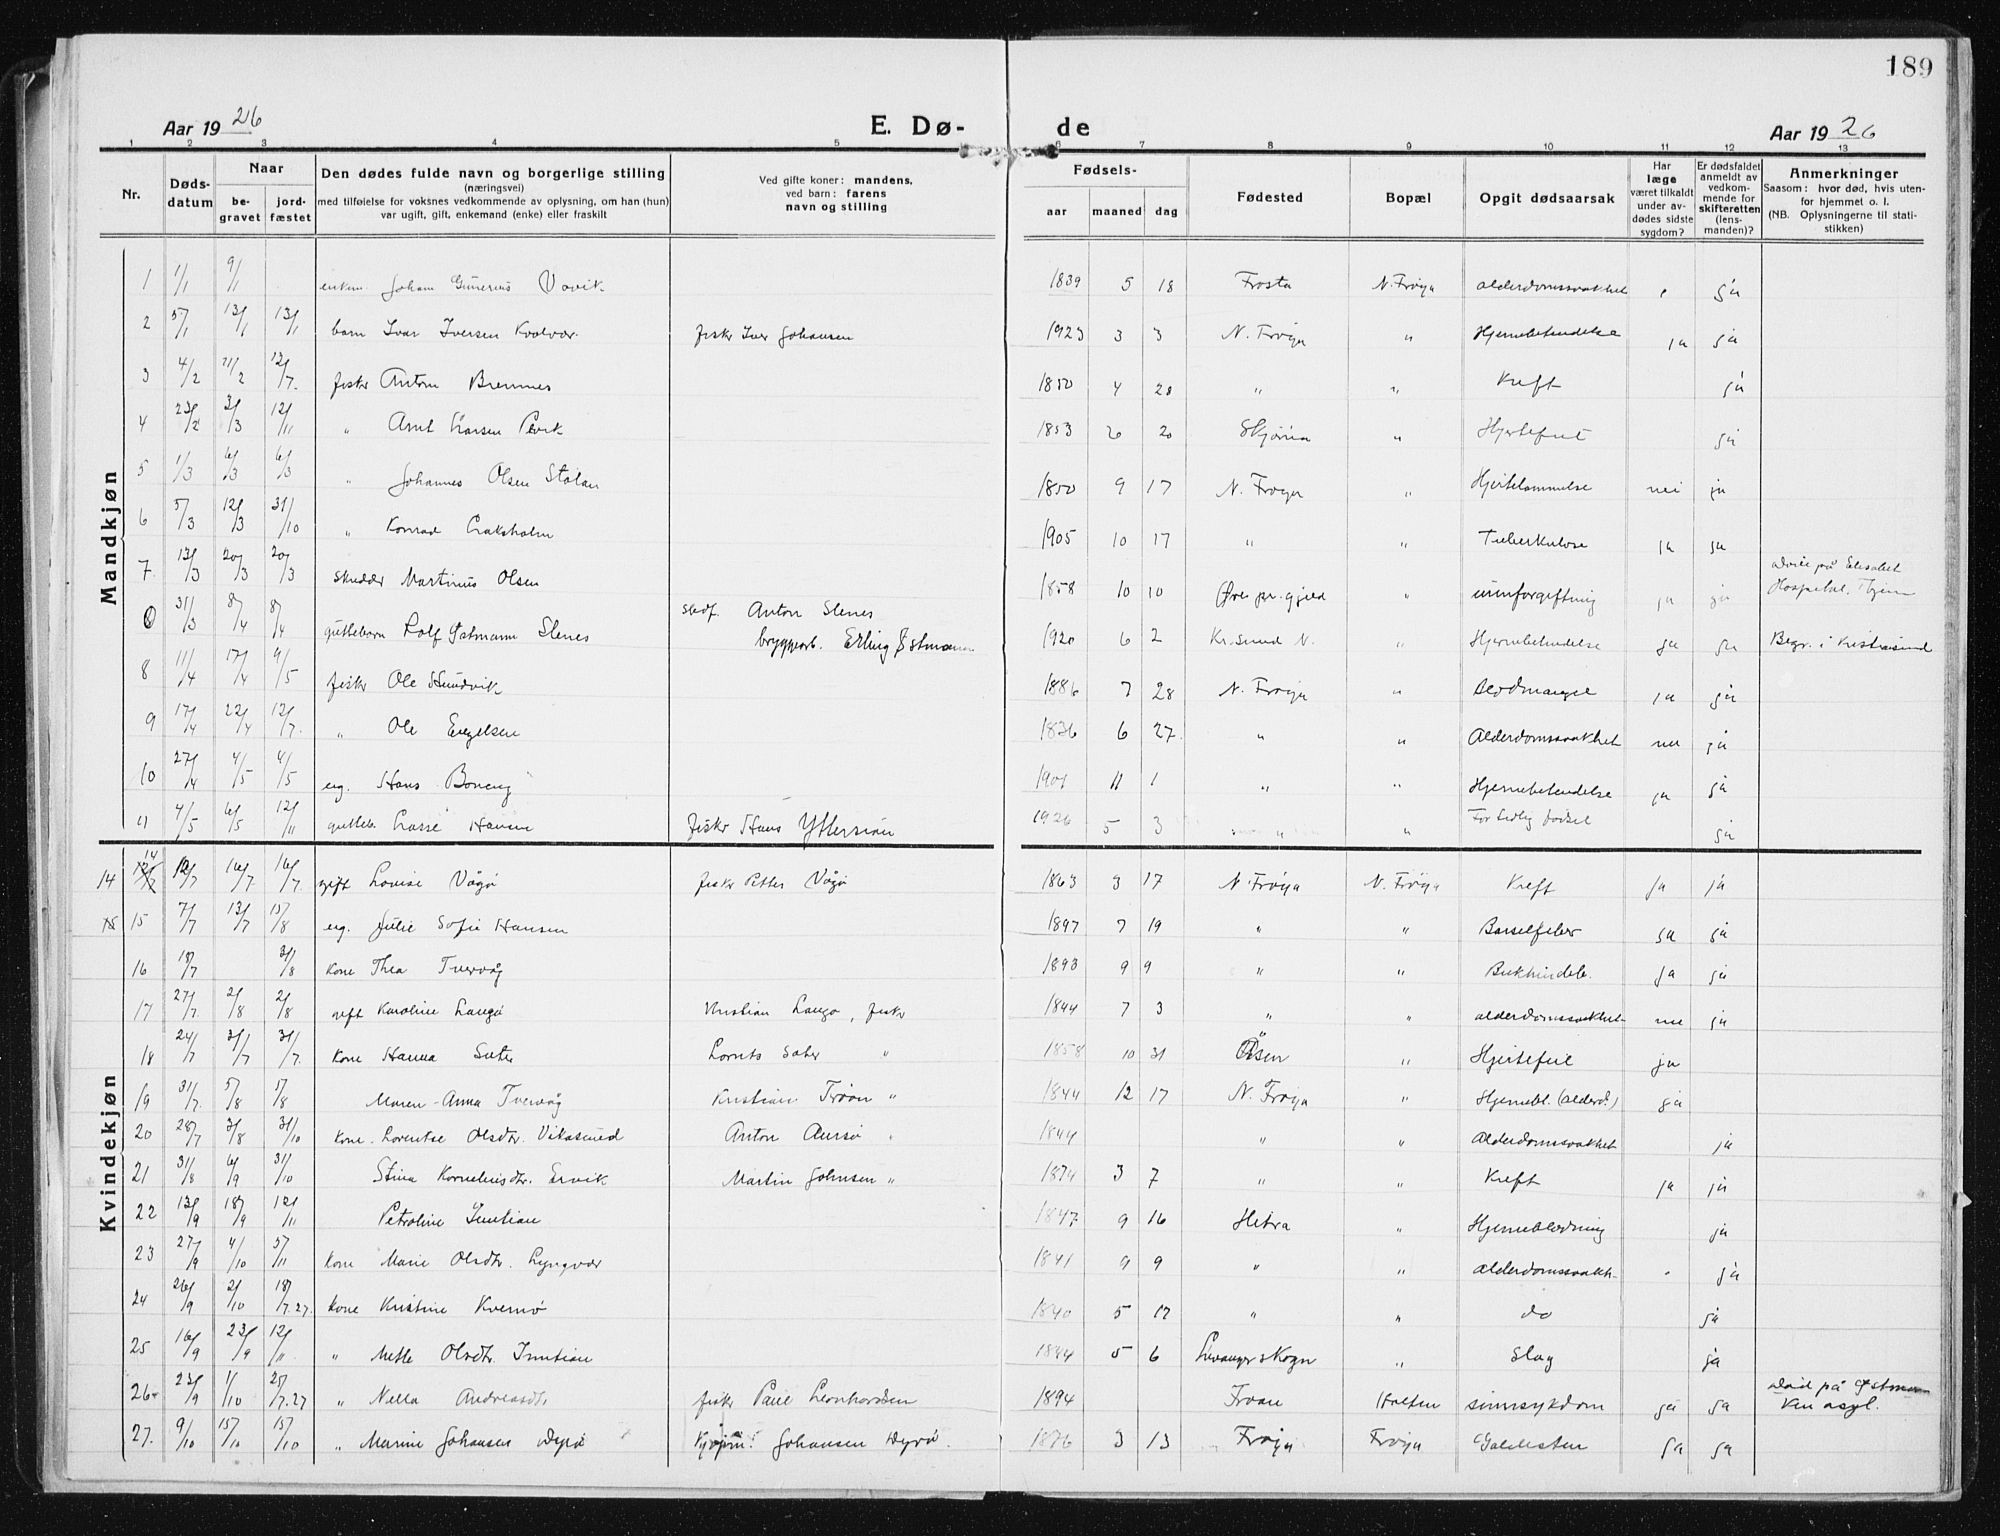 189
Aar 1926 E. Dø- de Aar 1926
1 2 3 4 5 6 7 8 9 10 11 12 13
Nr. Døds-datum Naar be-gravet jord-fæstet Den dødes fulde navn og borgerlige stilling (næringsvei) med tilføielse for voksnes vedkommende av oplysning, om han (hun) var ugift, gift, enkemand (enke) eller fraskilt Ved gifte koner: mandens, ved barn: farens navn og stilling Fødsels- aar maaned dag Fødested Bopæl Opgit dødsaarsak Har læge været tilkaldt under av-dødes sidste sygdom? Er dødsfaldet anmeldt av vedkom-mende for skifteretten (lens-manden)? Anmerkninger Saasom: hvor død, hvis uten-for hjemmet o. l. (NB. Oplysningerne til stati-stikken)
Mandkjøn
1 1/1 9/1 enkem. Johan Gunerius Vavik 1839 5 18 Frosta N. Frøya alderdomssvakhet ja
2 5/1 13/1 13/1 barn Ivar Iversen Kvalvær fisker Iver Johansen 1923 3 3 N. Frøya " Hjernebetendelse ja ja
3 4/2 11/2 12/7 fisker Anton Bremnes 1850 4 28 " " Kreft ja
4 23/2 3/3 12/11 " Arnt Larsen 1853 2 20 " Hjertefeil ja
5 1/3 6/3 6/3 " Johannes Olsen Stølan 1850 9 17 N. Frøya " Hjertelammelse nei ja
6 5/3 12/3 31/10 " Konrad Laksholm 1905 10 17 " " Tuberkulose ja ja
7 13/3 20/3 20/3 skredder Martinus Olsen 1858 10 10 Øre pr.gjeld urinforgiftning ja ja Døde på Elisabet Hospital, Thjem
0 31/3 8/4 8/4 guttebarn Rolf Østmann Slenes stedf. Anton Slenes bryggearb. Erling Østmann 1920 6 2 Kr.sund N. " Hjernebetendelse ja ja Begr. i Kristiansund
8 11/4 17/4 9/5 fisker Ole Sundvik 1886 7 28 N. Frøya " Blodmangel ja ja
9 17/4 22/4 12/7 " Ole Engelsen 1836 6 27 " " Alderdomssvakhet nei ja
10 27/4 4/5 4/5 ug. Hans Boneng 1901 11 1 " " Hjernebetendelse ja ja
11 4/5 6/5 12/11 gutteb. Lasse Hansen fisker Hans Yttersian 1926 5 3 " " For tidlig fødsel ja
Kvindekjøn
14 14 12/7 16/7 16/7 gift Lovise Vågø fisker Petter Vågø 1863 3 17 N. Frøya N. Frøya Kreft ja ja
15 7/7 13/7 15/8 ug. Julie Sofie Hansen 1897 7 19 " " Barselfeber ja ja
16 18/7 31/8 kone Thea Tvervåg 1893 9 9 " " Bukhindeb. ja ja
17 27/7 2/8 2/8 gift Karoline Langø Kristian Langø, fisker 1844 7 3 " " alderdomssvakhet nei ja
18 24/7 31/7 31/7 kone Hanna Sæter Lornts Sæter " 1858 10 31 Åsen " Hjertefeil ja
19 31/7 5/8 5/8 Maren-Anna Tvervåg Kristian Trøan " 1844 12 17 N. Frøya " Hjernebl. (alderd.) ja
20 28/7 3/8 31/10 kone Lorentse Olsdtr. Vikasund Anton Aursø " 1844 " " Alderdomssvakhet ja
21 31/8 6/9 31/10 Stina Kornelinsdtr. Ervik Martin Johnsen " 1874 3 7 " " Kreft ja ja
22 13/9 18/9 12/11 Petroline Inntian 1847 9 16 Hitra " Hjerneblødning ja
23 27/9 4/10 5/11 kone Marie Olsdtr. Lyngvær 1841 9 9 " " alderdomssvakh. ja
24 26/9 2/10 18/7.27. kone Kristine Kvernø 1840 5 12 " " do ja
25 16/9 23/9 12/11 " Mette Olsdtr. Inntian 1844 5 6 Levanger skogn " Slag ja
26 23/9 1/10 25/7.27 " Nella Andreasdt. fisker Paul Leonhardsen 1894 Froan Halten sinnsykdom ja ja Død på Østmarken asyl.
27. 9/10 15/10 15/10 " Marine Johansen Dyrø Kjøpm. Johansen Dyrø. 1876 3 13 Frøya Frøya Galdesten ja ja